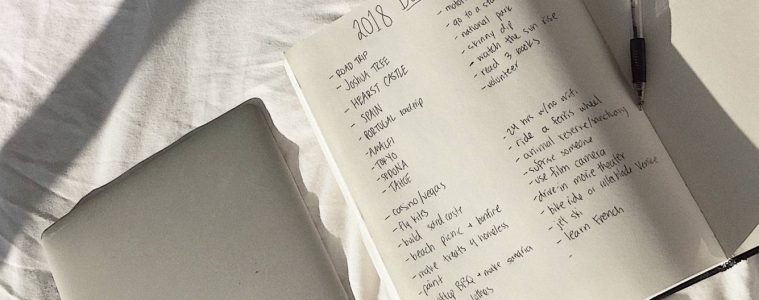 2018
- ROAD TRIP
- JOSHUA TREE
- HEARST CASTLE
- SPAIN
- PORTUGAL roadtrip
- AMALFI
- TOKYO
- SEDONA
- TAHOE
- casino/vegas
- fly kites
- build sandcastle
- beach picnic + bonfire
- make treats 4 homeless
- paint
BBQ + make
- go to a
- national park
- skinny dip
- watch the sun rise
- read 3 books
- volunteer
- 24 hrs w/no wifi
- ride a ferris wheel
- animal reserve/sanctuary
- suprise someone
- use film camera
- drive-in movie theater
- bike ride or rollerblade Venice
- jet ski
- learn French
-